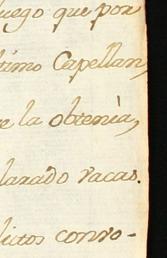 luego que por
ltimo Capellan,
e la obtenia,
larado vacas.
lictos convo-